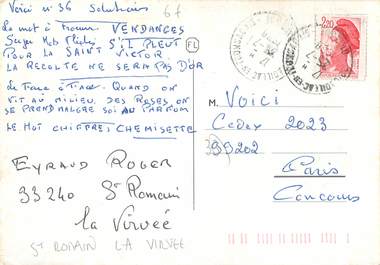 Voici n° 36 Solutions
67
Le mot à trouver VENDANGES
Super Mots Fléchés S'IL PLEUT
POUR LA SAINT VICTOR
LA RÉCOLTE NE SERA PAS D'OR
de Face à Face. QUAND ON
VIT AU MILIEU DES ROSES ON
SE PREND MALGRE SOI AU PARFUM
LE MOT CHIFFRÉ, CHEMISETTE
EYRAUD ROGER
33240 St Romain
la Virvée
ST ROMAIN LA VIRVEE
FL
2,20
M. VOICI
Cedex 2023
99202
Paris
Concours